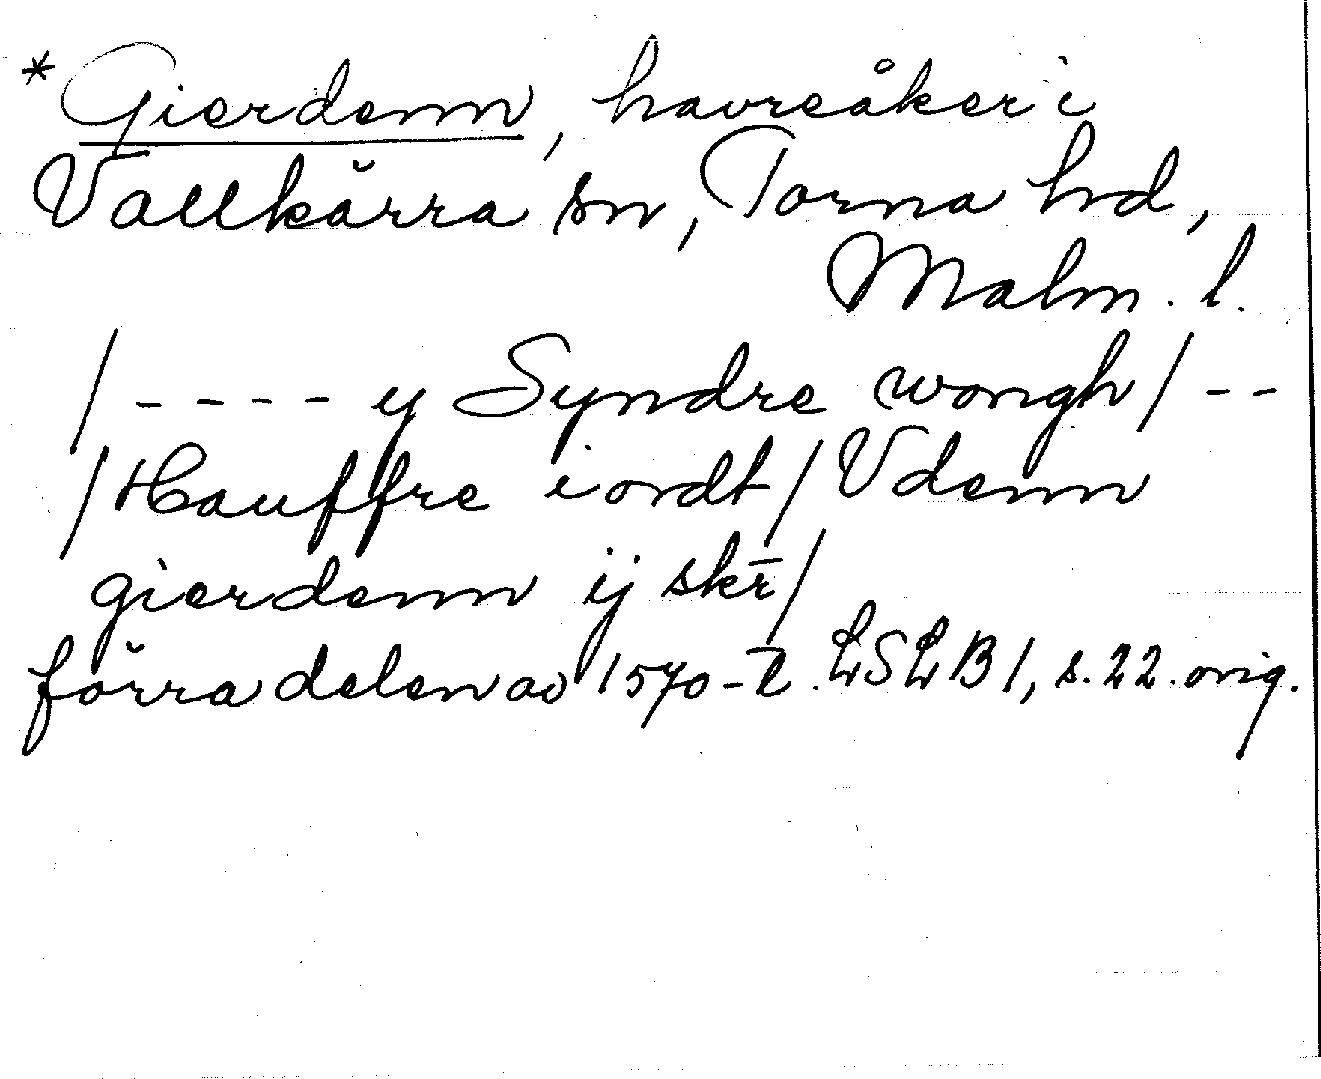 * Gierdenn, havreåker i
Vallkärra sn, Torna hd,
Malm. l.
/ - - - - y Syndre wongh / - -
/ Hauffre iordt / Vdenn
gierdenn ij skr̄ /
förra delen av 1570-t. LSLB 1, s. 22. orig.